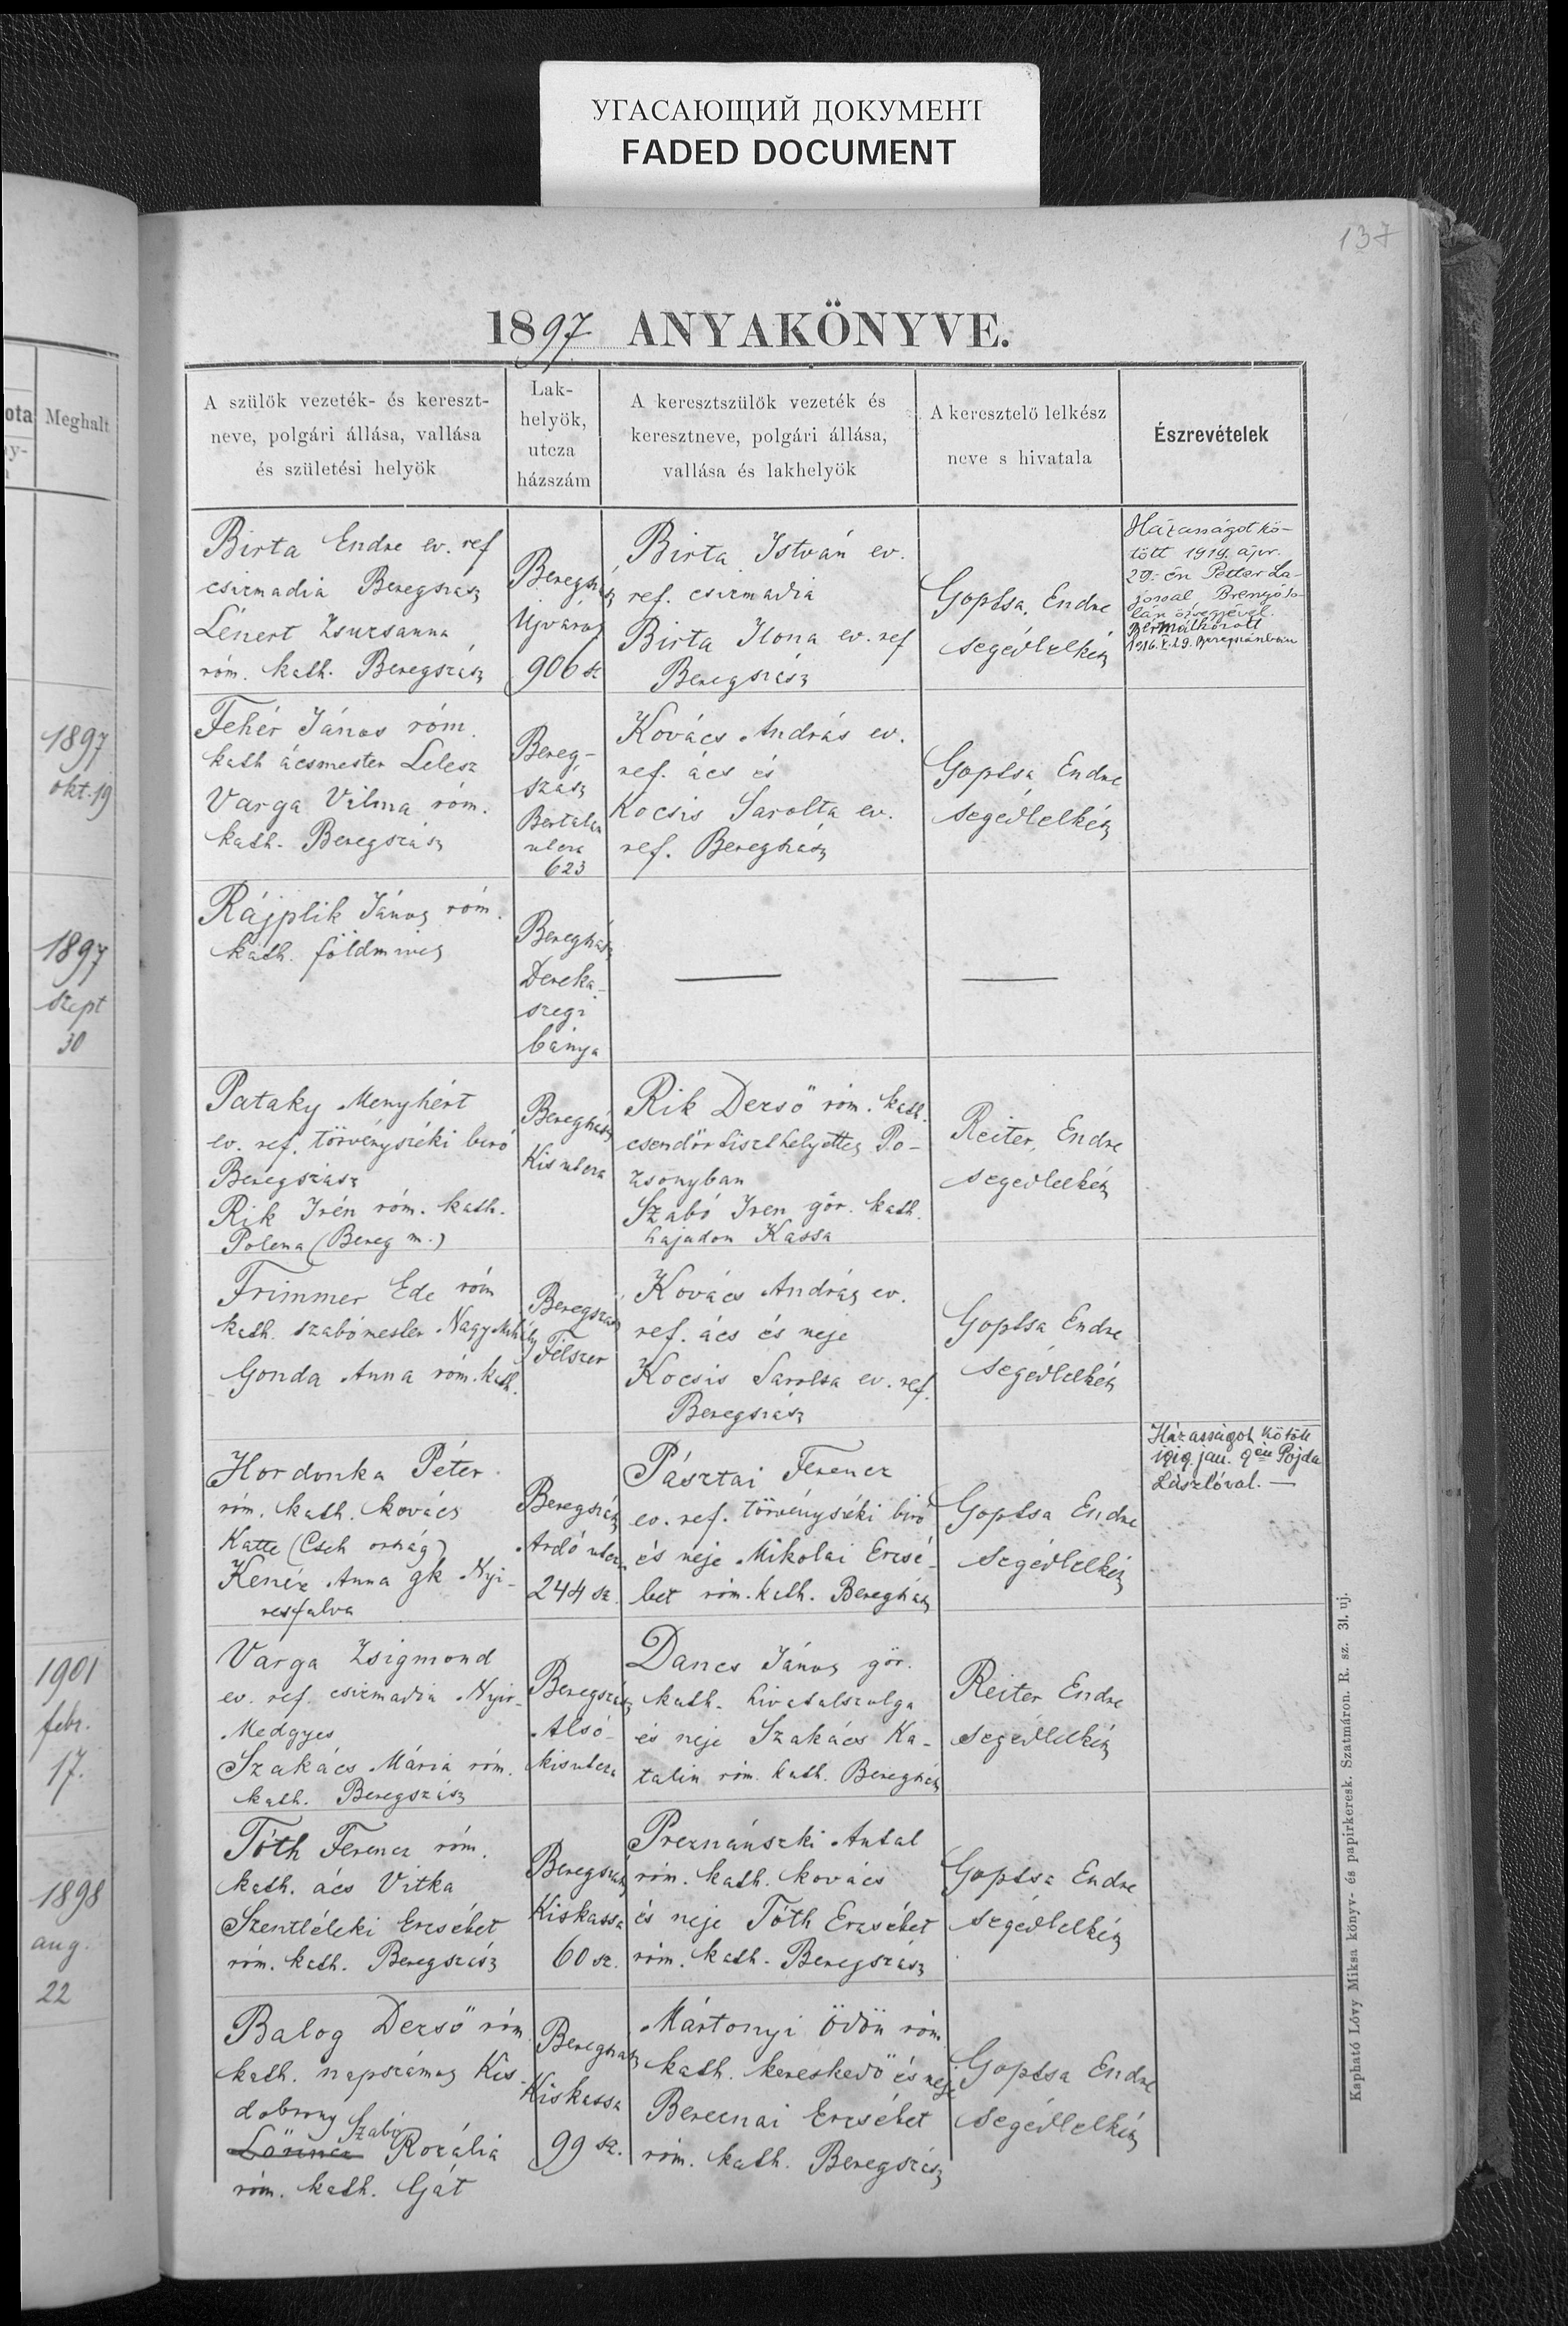 УГАСАЮЩИЙ ДОКУМЕНТ
FADED DOCUMENT
137
1897 ANYAKÖNYVE.
Meghalt
A szülök vezeték- és kereszt-
neve, polgári állása, vallása
és születési helyök
Lak-
helyök,
utcza
házszám
A keresztszülök vezeték és
keresztneve, polgári állása,
vallása és lakhelyök
A keresztelő lelkész
neve s hivatala
Észrevételek
Birta Endre ev. ref
csizmadia Beregszász
Lénert Zsuzsanna
róm. kath. Beregszász
Beregszász
Ujváros
906 sz
Birta István ev.
ref. csizmadia
Birta Ilona ev. ref
Beregszász
Goptsa Endre
segédlelkész
Házasságot kö-
tött 1919. ápr.
29.-én Petter La-
jossal, Brenyó
özvegyével.
Bérmálkozott
1916. V. 29. Beregszászban
1897
okt. 19
Fehér János róm.
kath ácsmester Lelesz
Varga Vilma róm.
kath. Beregszász
Bereg-
szász
Bertalan
utcza
623
Kovács András ev.
ref. ács és
Kocsis Sarolta ev.
ref. Beregszász
Goptsa Endre
segédlelkész
1897
szept
30
Rájplik János róm.
kath. földmives
Beregszász
Dereka-
szegi
bánya
Pataky Menyhért
ev. ref. törvényszéki biró
Beregszász
Rik Irén róm. kath.
Polena (Bereg m.)
Beregszász
Kis utcza
Rik Dezső róm. kath.
csendőrtiszthelyettes Po-
zsonyban
Szabó Iren gör. kath.
hajadon Kassa
Reiter Endre
segédlelkész
Frimmer Ede róm
kath. szabómester Nagy Mihály
Gonda Anna róm. kath.
Beregszász
Félszer
Kovács András ev.
ref. ács és neje
Kocsis Sarolta ev. ref.
Beregszász
Goptsa Endre
segédlelkész
Hordonka Péter
róm. kath. kovács
Katte (Cseh ország)
Kenéz Anna gk Nyi-
resfalva
Beregszász
Ardó utcza
244 sz.
Pásztai Ferencz
ev. ref. törvényszéki biró
és neje Mikolai Erzsé-
bet róm. kath. Beregszász
Goptsa Endre
segédlelkész
Házasságot kötött
1919. jan. 9én Pojda
Lászlóval. —
1901
febr.
17.
Varga Zsigmond
ev. ref. csizmadia Nyir-
Medgyes
Szakács Mária róm.
kath. Beregszász
Beregszász
Alsó-
kisutcza
Dancs János gör.
kath. hivatalszolga
és neje Szakács Ka-
talin róm. kath. Beregszász
Reiter Endre
segédlelkész
1898
aug.
22
Tóth Ferencz róm.
kath. ács Vitka
Szentléleki Erzsébet
róm. kath. Beregszász
Beregszász
Kiskassa
60 sz.
Preznánszki Antal
róm. kath. kovács
és neje Tóth Erzsébet
róm. kath. Beregszász
Goptsa Endre
segédlelkész
Balog Dezső róm
kath. napszámos Kis-
dobrony Szabó
Rozália
róm. kath. Gát
Beregszász
Kiskassa
99 sz.
Mártonyi Ödön róm
kath. kereskedő és neje
Berecnai Erzsébet
róm. kath. Beregszász
Goptsa Endre
segédlelkész
Kapható Lövy Miksa könyv- és papirkeresk. Szatmáron. R. sz. 31. uj.